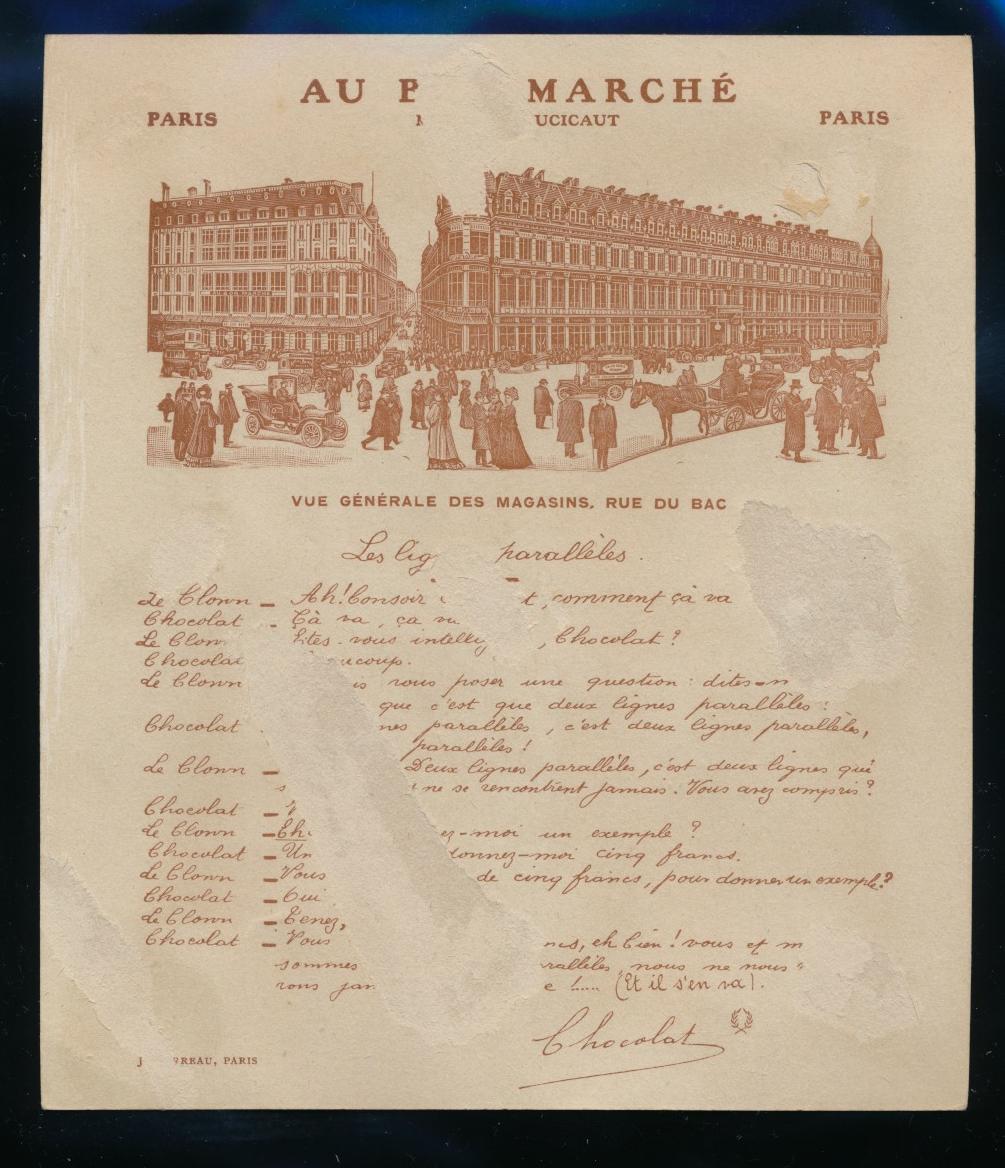 AU MARCHÉ
PARIS UCICAUT PARIS
VUE GÉNÉRALE DES MAGASINS, RUE DU BAC
Les lig parallèles.
Le Clown — Ah! Bonsoir t, comment çà va
Chocolat - Çà va, ça
Le Clown Êtes-vous intell , Chocolat ?
Chocolat ucoup.
Le Clown vous poser une question : dites-
que c'est que deux lignes parallèles :
Chocolat nes parallèles, c'est deux lignes parallèles,
parallèles !
Le Clown — Deux lignes parallèles, c'est deux lignes qui
ne se rencontrent jamais. Vous avez compris ?
Chocolat —
Le Clown — Eh ez-moi un exemple ?
Chocolat — Un donnez-moi cinq francs.
Le Clown — Vous de cinq francs, pour donner un exemple ?
Chocolat — Oui
Le Clown — Tenez,
Chocolat — Vous ncs, eh bien ! vous et m
sommes rallèles nous ne nous
rons jam e !..... (Et il s'en va).
Chocolat
J RREAU, PARIS